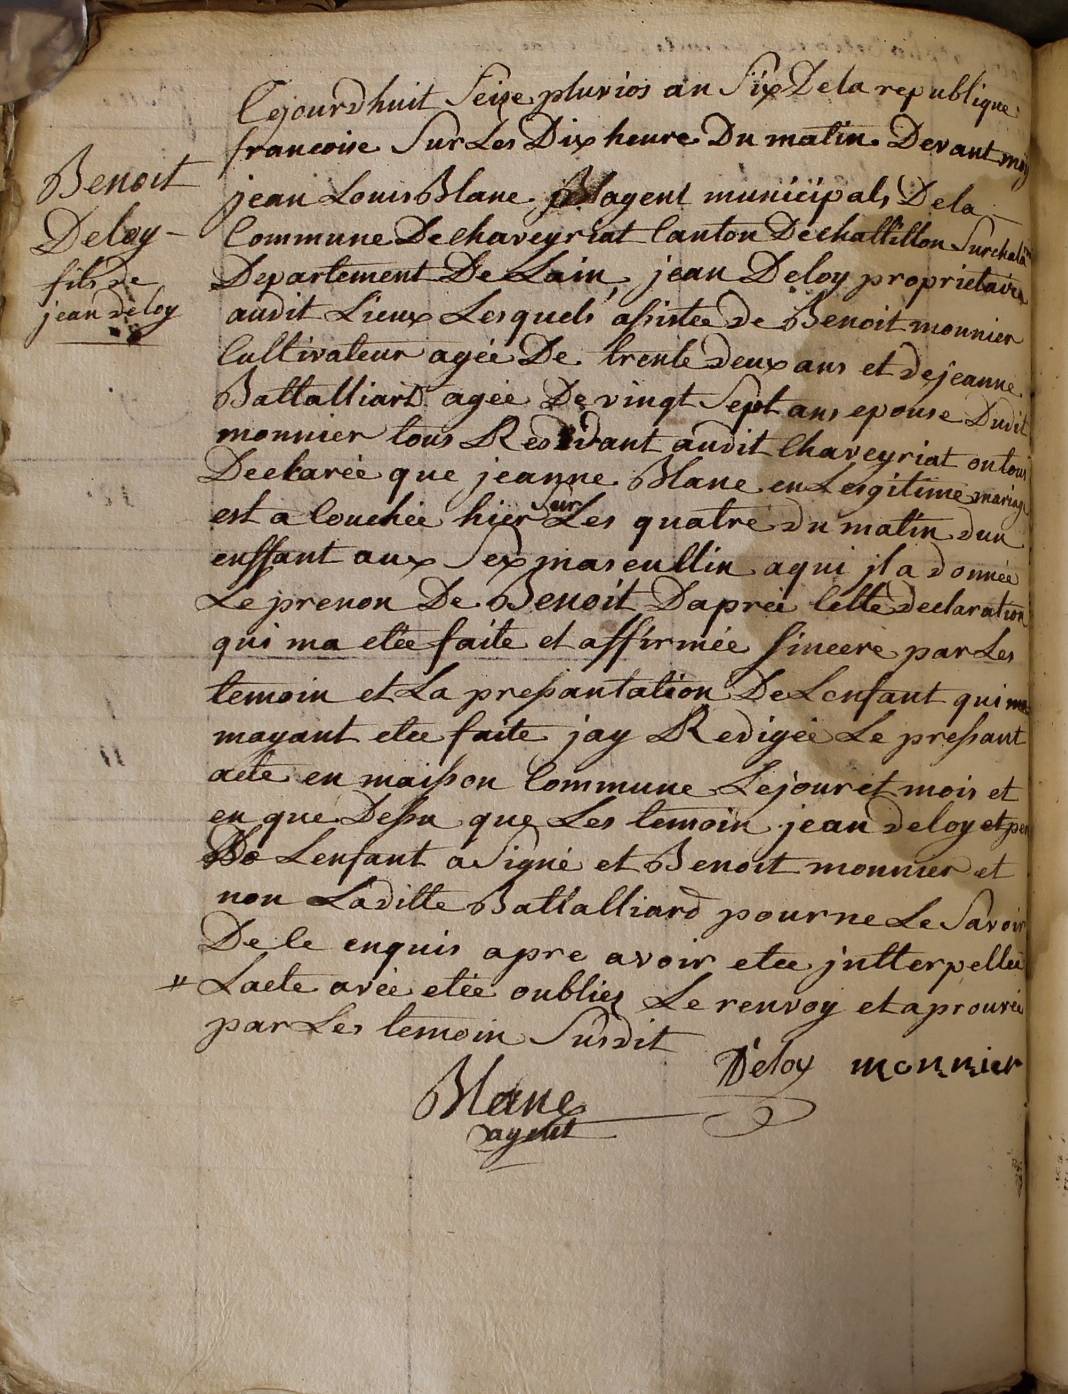 Benoit
Deloy
fils de
jean deloy
Cejourdhuit Seize pluvios an Six De la republique
francoise Sur Les Dix heure Du matin. Devant moy
jean Louis Blanc agent municipals De la
Commune De chaveyriat Canton De chattillon Sur chala
Departement De Lain, jean Deloy proprietaire
audit Lieux Lesquels assistee de Benoit monnier
Cultivateur agée De trente deux ans et de jeanne
Battalliard agée De vingt Sept ans epouse Dudit
monnier tous Residant audit Chaveyriat on tous
Declarée que jeanne Blanc en Lesgitime mariage
est a Couchée hier Sur Les quatre du matin dun
enffant aux Sex mascullin a qui jl a donnée
Le prenon De Benoit Daprée Cette declaration
qui ma etée faite et affirmée Sincere par Les
temoin et La pressantation De Lenfant qui
mayant etee faite jay Redigée Le pressant
acte en maisson Commune Le jour et mois et
en que Dessu que Les temoin jean deloy et per
De Lenfant a Signé et Benoit monnier et
non Laditte Battalliard pour ne Le Savoir
De le enquis apre avoir etee jntterpellée
" Lacte avée etée oubliez Le renvoy et aprouvée
par Les temoin Susdit
Deloy monnier
Blanc
agent